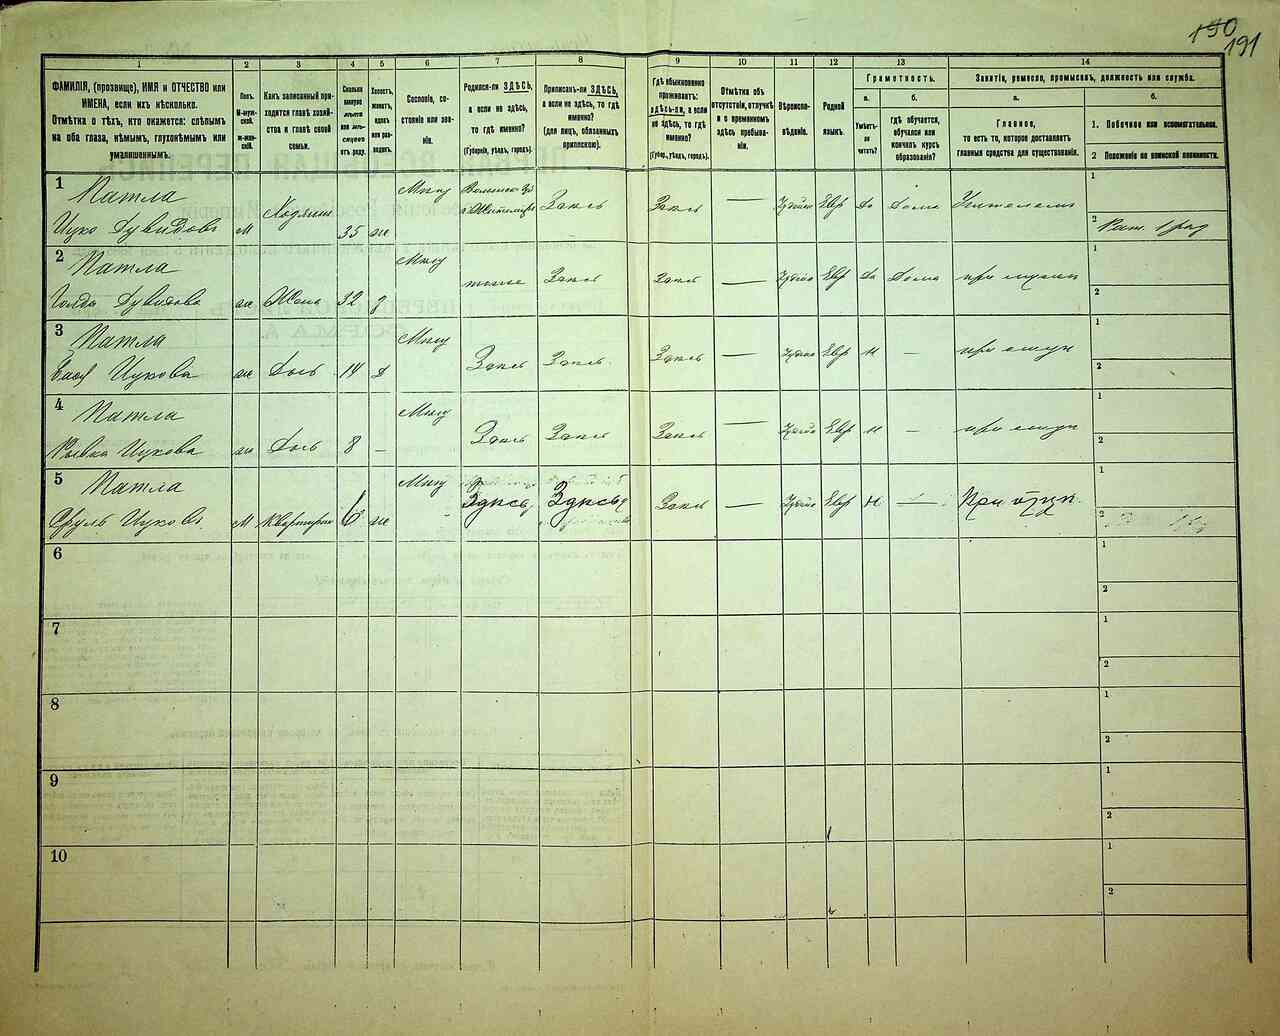 190
191
1
2
3
4
5
6
7
8
9
10
11
12
13
14
ФАМИЛІЯ, (прозвище), ИМЯ и ОТЧЕСТВО или
ИМЕНА, если ихъ нѣсколько.
Отмѣтка о тѣхъ, кто окажется: слѣпымъ
на оба глаза, нѣмымъ, глухонѣмымъ или
умалишеннымъ.
Полъ.
М-муж-
ской.
ж-жен-
скій.
Какъ записанный при-
ходится главѣ хозяй-
ства и главѣ своей
семьи.
Сколько
минуло
лѣтъ
или мѣ-
сяцевъ
отъ роду.
Холостъ,
женатъ,
вдовъ
или раз-
веденъ.
Сословіе, со-
стояніе или зва-
ніе.
Родился-ли ЗДѢСЬ,
а если не здѣсь,
то гдѣ именно?
(Губернія, уѣздъ, городъ).
Приписанъ-ли ЗДѢСЬ,
а если не здѣсь, то гдѣ
именно?
(для лицъ, обязанныхъ
припискою).
Гдѣ обыкновенно
проживаетъ:
здѣсь-ли, а если
не здѣсь, то гдѣ
именно?
(Губер., уѣздъ, городъ).
Отмѣтка объ
отсутствіи, отлучкѣ
и о временномъ
здѣсь пребыва-
ніи.
Вѣроиспо-
вѣданіе.
Родной
языкъ.
Грамотность.
а.
Умѣетъ-
ли
читать?
б.
гдѣ обучается,
обучался или
кончилъ курсъ
образованія?
Занятіе, ремесло, промыселъ, должность или служба.
а.
Главное,
то есть то, которое доставляетъ
главныя средства для существованія.
б.
1. Побочное или вспомогательное.
2 Положеніе по воинской повинности.
1
Патла
Ицко Дувидовъ
м
Хозяинъ
35
ж
Мѣщ
Здѣсь
Здѣсь
—
Іудейс
Евр
Да
Дома
Учитель
1
2 Рат. 1 раз
2
Патла
Голда
ж
Жена
32
з
Мѣщ
тоже
Здѣсь
Здѣсь
—
Іудейс
Евр
Да
Дома
при мужѣ
1
2
3
Патла
Ицкова
ж
Дочь
14
д
Мѣщ
Здѣсь
Здѣсь
Здѣсь
—
Іудейс
Евр
н
—
при отцѣ
1
2
4
Патла
Ривка Ицкова
ж
Дочь
8
—
Мѣщ
Здѣсь
Здѣсь
Здѣсь
—
Іудейс
Евр
н
—
при отцѣ
1
2
5
Патла
Сруль Ицковъ
м
6
Мѣщ
Здѣсь
Здѣсь
Здѣсь
—
Іудейс
Евр
н
—
При отцѣ
1
2
6
1
2
7
1
2
8
1
2
9
1
2
10
1
2